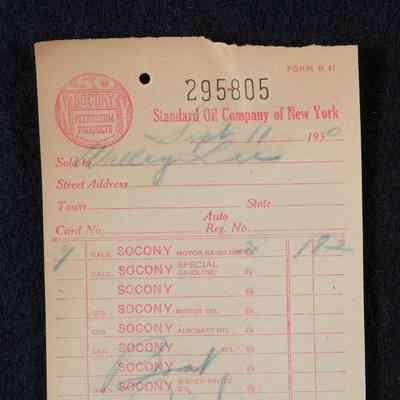 FORM H 41
SOCONY
PETROLEUM
PRODUCTS
295805
Standard Oil Company of New York
Sept 11 1930
Sold to
Street Address
Town State
Auto
Card No. Reg. No.
9 GALS. SOCONY MOTOR GASOLINE @ 182
GALS. SOCONY SPECIAL GASOLINE @
SOCONY @
QTS. SOCONY MOTOR OIL @
QTS. SOCONY AIRCRAFT OIL @
GALS. SOCONY OIL @
SOCONY @